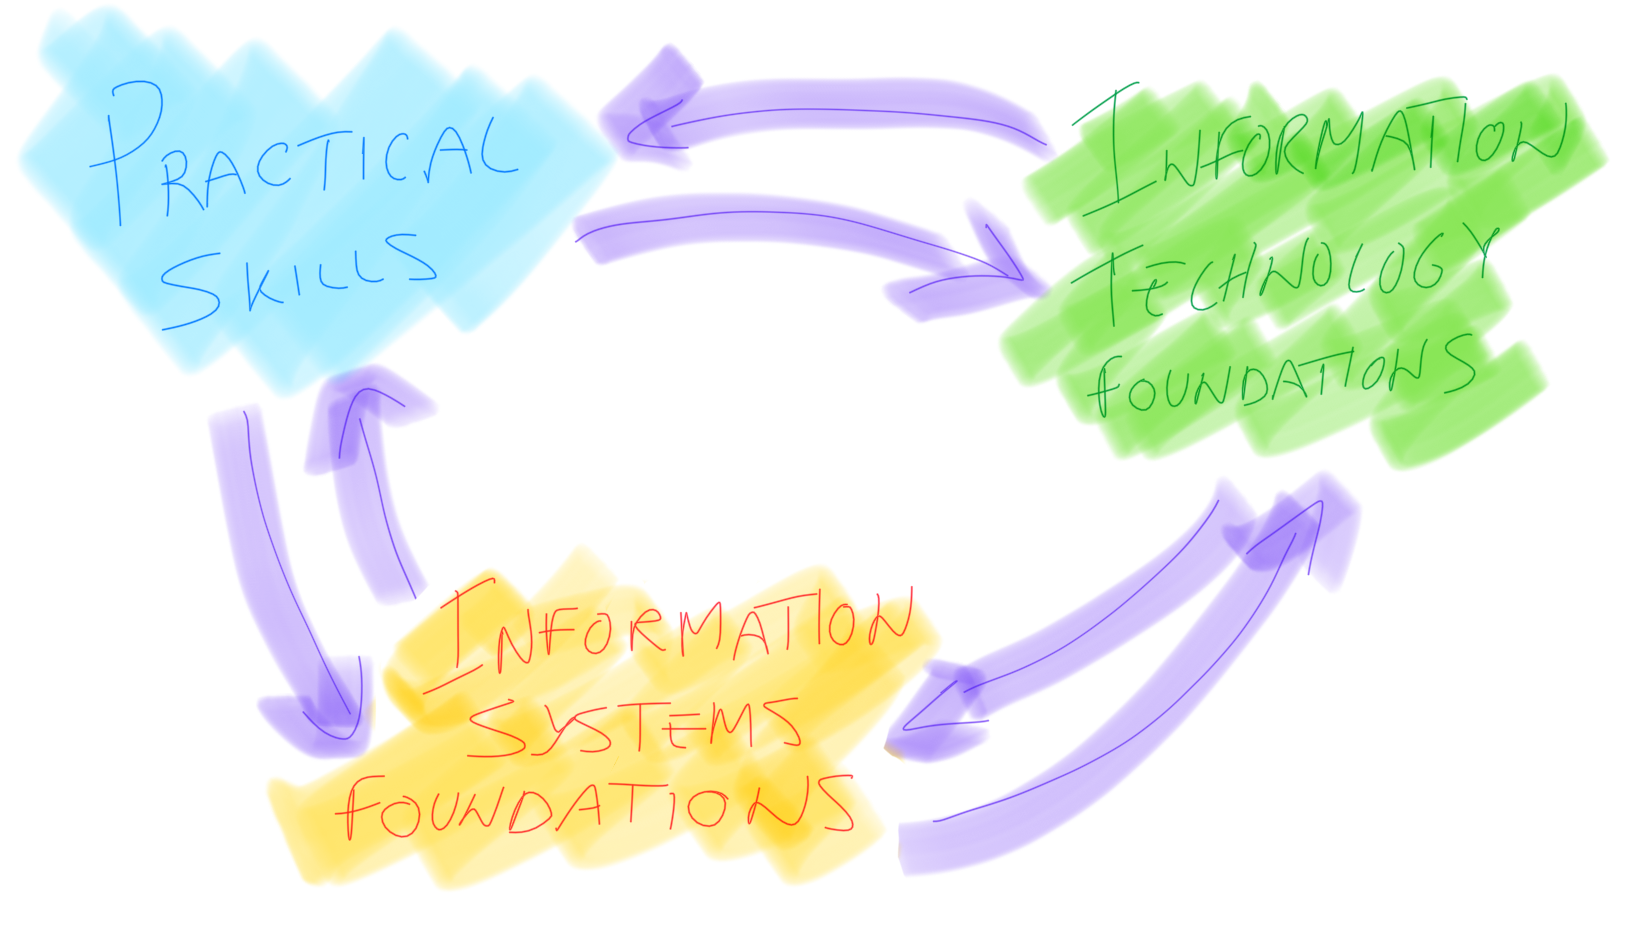 PRACTICAL
SKILLS
INFORMATION
TECHNOLOGY
FOUNDATIONS
INFORMATION
SYSTEMS
FOUNDATIONS